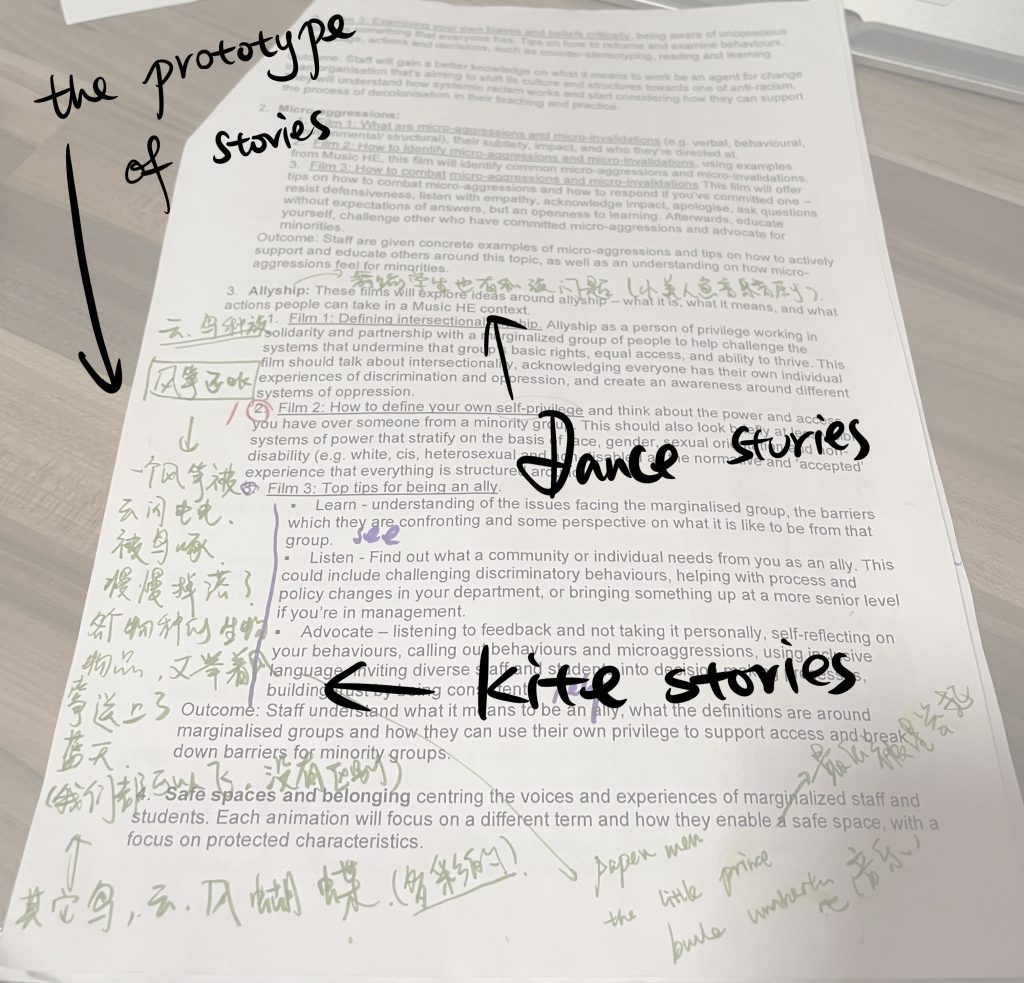 the prototype
of stories
Film 3: Examining your own biases and beliefs critically, being aware of unconscious
something that everyone has. Tips on how to reframe and examine behaviours,
actions and decisions, such as counter-stereotyping, reading and learning.
Staff will gain a better knowledge on what it means to work be an agent for change
organisation that's aiming to shift its culture and structures towards one of anti-racism.
understand how systemic racism works and start considering how they can support
the process of decolonisation in their teaching and practice.
2. Micro-aggressions:
Film 1: What are micro-aggressions and micro-invalidations (e.g. verbal, behavioural,
environmental/ structural), their subtlety, impact, and who they're directed at.
2. Film 2: How to Identify micro-aggressions and micro-invalidations, using examples
from Music HE, this film will identify common micro-aggressions and micro-invalidations.
3. Film 3: How to combat micro-aggressions and micro-invalidations This film will offer
tips on how to combat micro-aggressions and how to respond if you've committed one –
resist defensiveness, listen with empathy, acknowledge impact, apologise, ask questions
without expectations of answers, but an openness to learning. Afterwards, educate
yourself, challenge other who have committed micro-aggressions and advocate for
minorities.
Outcome: Staff are given concrete examples of micro-aggressions and tips on how to actively
support and educate others around this topic, as well as an understanding on how micro-
aggressions feel for minorities.
学生也有 问题 (小美人鱼音乐剧)
3. Allyship: These films will explore ideas around allyship – what it is, what it means, and what
actions people can take in a Music HE context.
1. Film 1: Defining intersectional allyship. Allyship as a person of privilege working in
solidarity and partnership with a marginalized group of people to help challenge the
systems that undermine that group's basic rights, equal access, and ability to thrive. This
film should talk about intersectionality, acknowledging everyone has their own individual
experiences of discrimination and oppression, and create an awareness around different
systems of oppression.
Dance stories
2. Film 2: How to define your own self-privilege and think about the power and access
you have over someone from a minority group. This should also look
systems of power that stratify on the basis of race, gender, sexual
disability (e.g. white, cis, heterosexual and normative and 'accepted'
experience that everything is structured
3. Film 3: Top tips for being an ally.
Learn - understanding of the issues facing the marginalised group, the barriers
which they are confronting and some perspective on what it is like to be from that
group. see
Listen - Find out what a community or individual needs from you as an ally. This
could include challenging discriminatory behaviours, helping with process and
policy changes in your department, or bringing something up at a more senior level
if you're in management.
Advocate – listening to feedback and not taking it personally, self-reflecting on
your behaviours, calling out behaviours and microaggressions, using inclusive
language, inviting diverse staff and students into decision
building trust by being consistent
kite stories
Outcome: Staff understand what it means to be an ally, what the definitions are around
marginalised groups and how they can use their own privilege to support access and break
down barriers for minority groups.
4. Safe spaces and belonging centring the voices and experiences of marginalized staff and
students. Each animation will focus on a different term and how they enable a safe space, with a
focus on protected characteristics.
一个风筝被
云闪电电,
被鸟啄
慢慢掉落了
各物种的生物
物品,又举着风
筝送上了
蓝天.
(我们都可以飞,没有区别)
其它鸟,云.风 蝴蝶 (多彩缤的)
paper men
the little prince